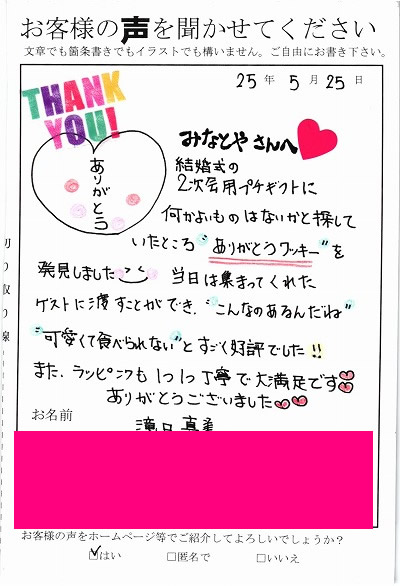 お客様の声を聞かせてください
文章でも箇条書きでもイラストでも構いません。ご自由にお書き下さい。
25年 5月 25日
THANK YOU!
ありがとう
みなとやさんへ
結婚式の
2次会用プチギフトに
何かよいものはないかと探して
いたところ"ありがとうクッキー"を
発見しました
当日は集まってくれた
ゲストに渡すことができ、"こんなのあるんだね"
"可愛くて食べられない"とすごく好評でした!!
また、ラッピングも1つ1つ丁寧で大満足です
ありがとうございました
切り取り線
お名前
お客様の声をホームページ等でご紹介してよろしいでしょうか?
☑はい □匿名で □いいえ